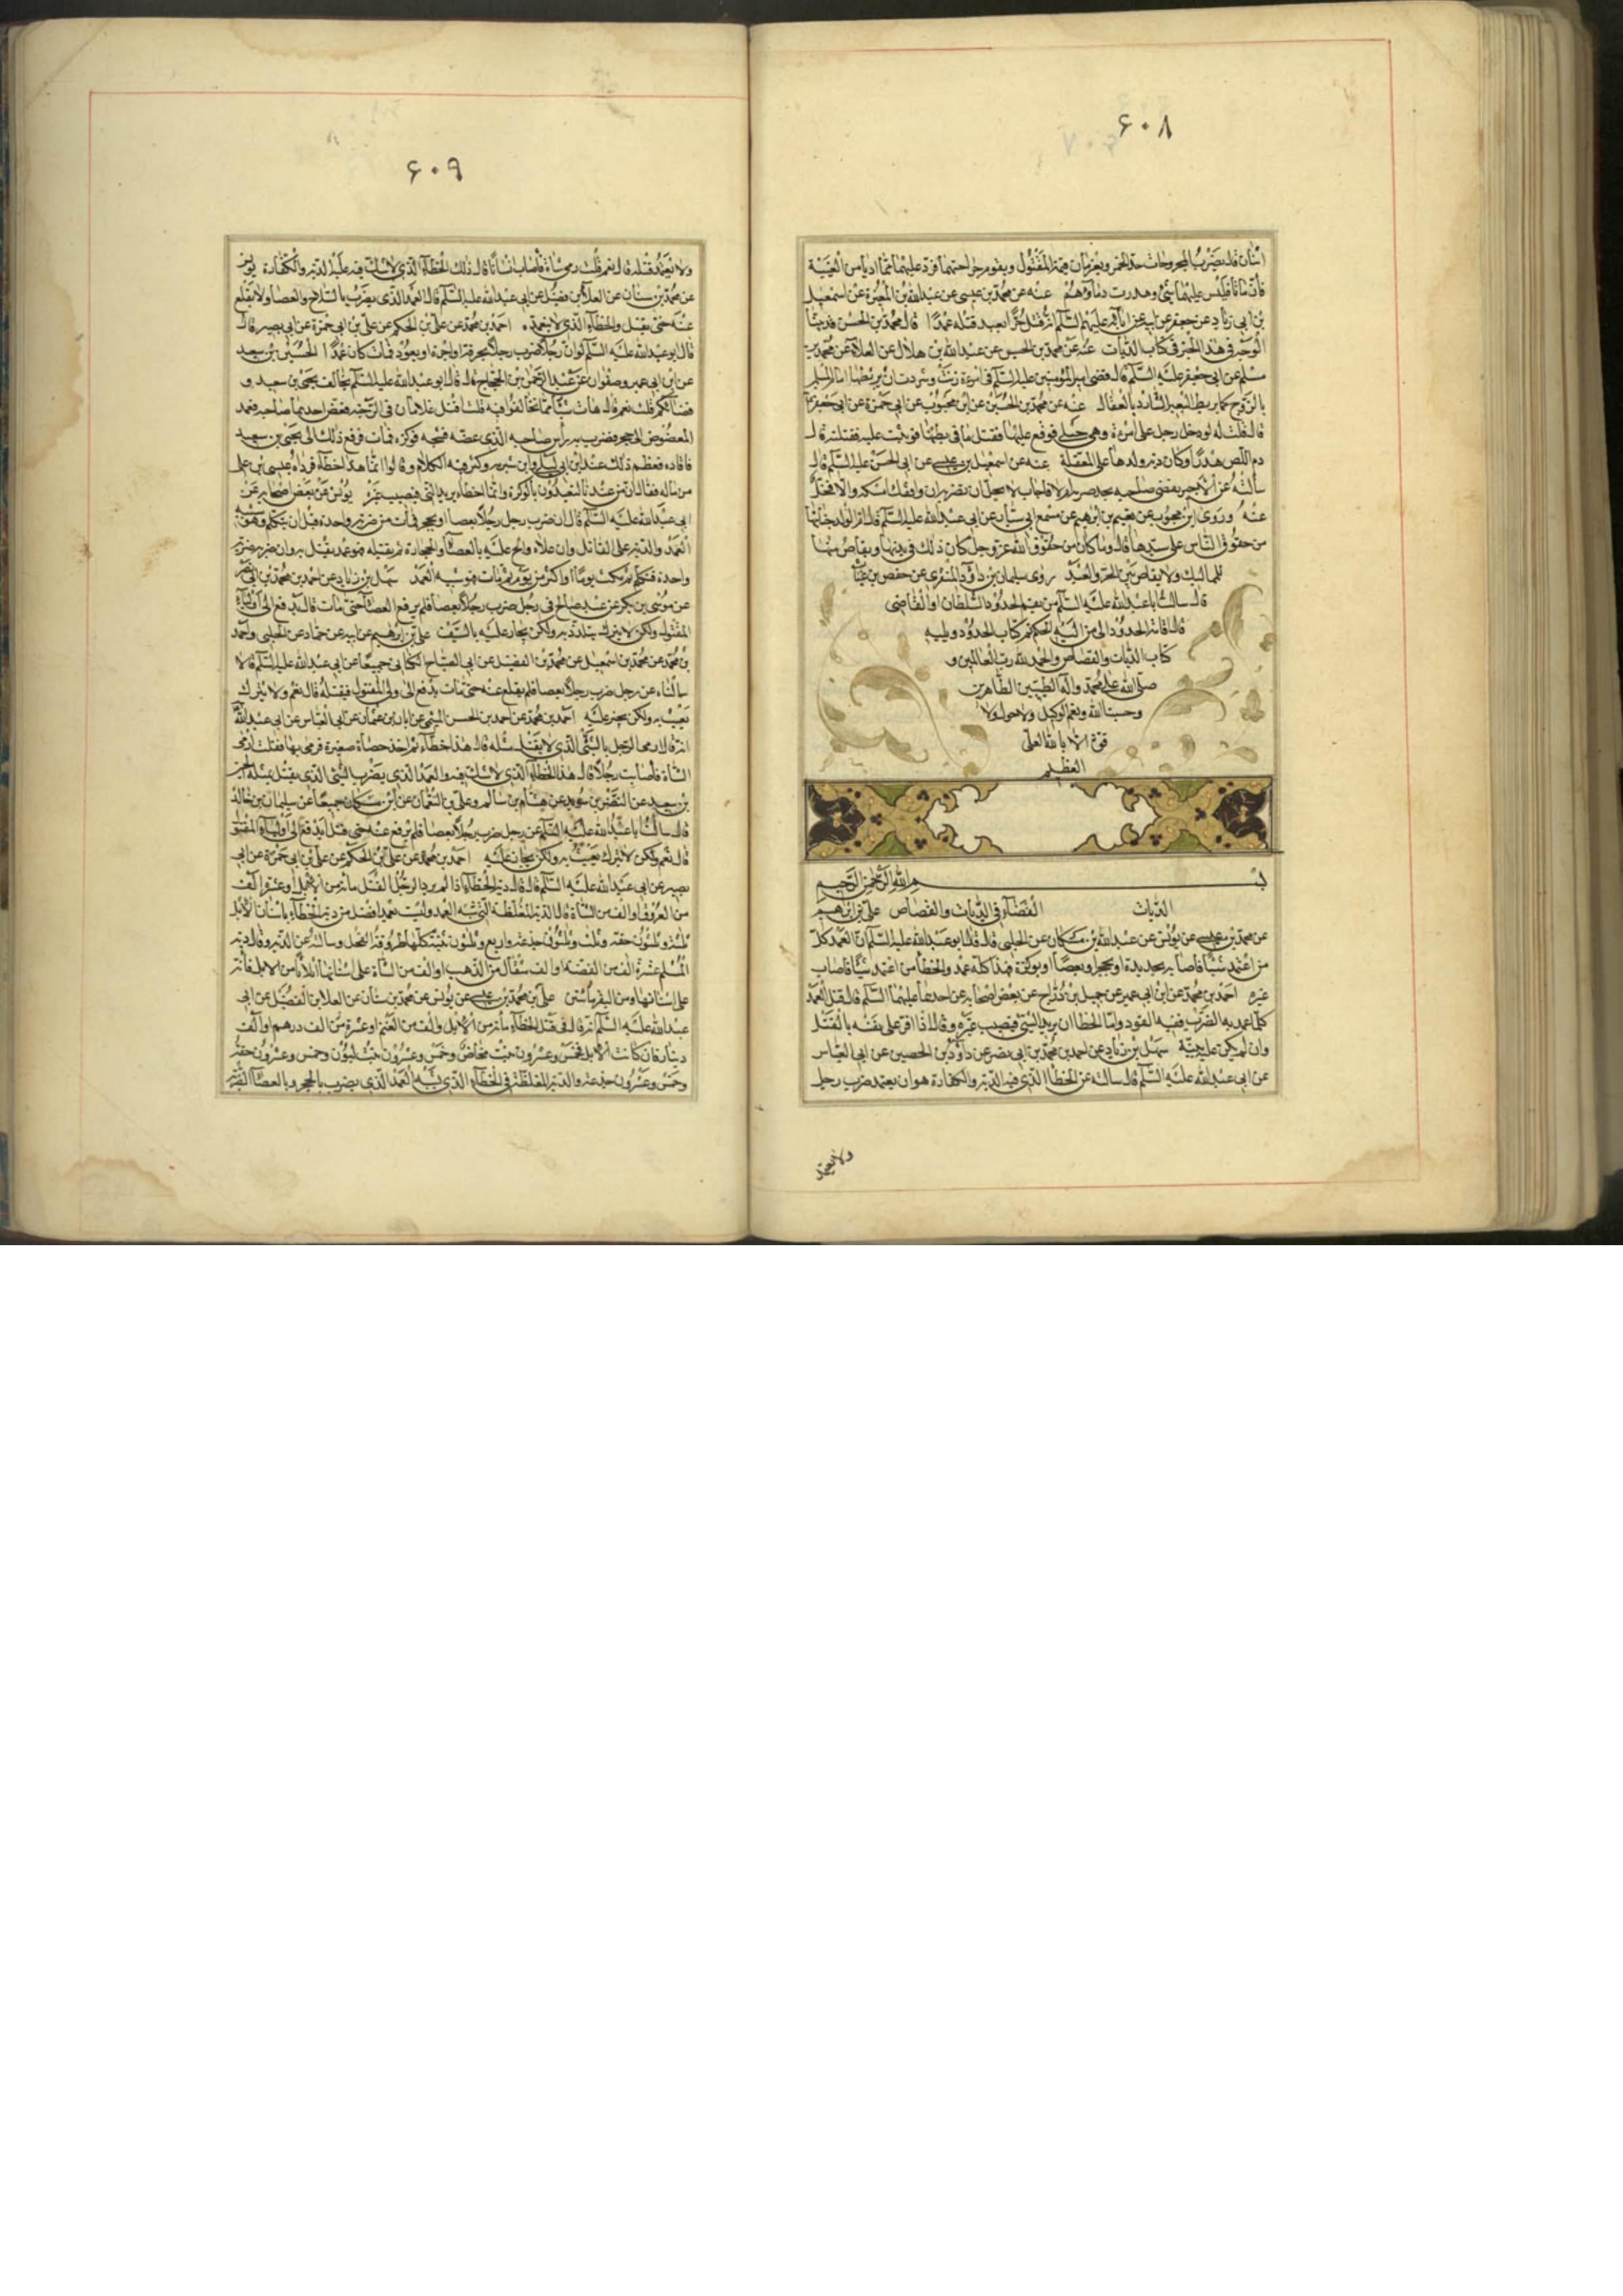 ۶۰۸
اثنان قال يضرب المجروحان حد الخمر ويغرمان قيمة المقتول ويقوم جراحتهما فترد عليهما مما اديا من الدية
فان ماتا فليس عليهما شئ وهدرت دماؤهم عنه عن محمد بن عيسى عن عبدالله بن المغيرة عن اسمعيل
بن ابى زياد عن جعفر عن ابيه عن ابائه عليهم السلم انه قتل حرا بعبد قتله عمدا قال محمد بن الحسن قد بينا
الوجه فى هذا الخبر فى كتاب الديات عنه عن محمد بن عبدالله بن هلال عن العلاء عن محمد بن
مسلم عن ابى جعفر عليه السلم قال قضى امير المؤمنين عليه السلم فى امرءة زنت وشردت ان يربطها امام المسلمين
بالزوج كما يربط البعير الشارد بالعقال عنه عن محمد بن الحسين عن ابن محبوب عن ابى حمزة عن ابى جعفر
قال قلت له لو دخل رجل على امرءة وهى حبلى فوقع عليها فقتل ما فى بطنها فوثبت عليه فقتلته قال
دم اللص هدرا وكان دية ولدها على المعقلة عنه عن اسمعيل بن عيسى عن ابى الحسن عليه السلم قال
سالته عن الاجير يعصى صاحبه ايحل ضربه ام لا فاجاب لا يحل ان تضربه ان وافقك امسكه والا فخل
عنه وروى ابن محبوب عن نعيم بن ابرهيم عن مسمع ابى سيار عن ابى عبدالله عليه السلم قال ام الولد جنايتها
من حقوق الناس على سيدها قال وما كان من حقوق الله عز وجل كان ذلك فى بدنها ويقاص منها
للمماليك ولا يقاص بين الحر والعبد روى سليمان بن داود المنقرى عن حفص بن غياث
قال سالت ابا عبدالله عليه السلم من يقيم الحدود السلطان او القاضى
فقال اقامة الحدود الى من اليه الحكم تم كتاب الحدود ويليه
كتاب الديات والقصاص والحمد لله رب العالمين و
صلى الله على محمد واله الطيبين الطاهرين
وحسبنا الله ونعم الوكيل ولا حول ولا
قوة الا بالله العلى
العظيم
بسم الله الرحمن الرحيم
الديات القضاء فى الديات والقصاص على بن ابرهيم
عن محمد بن عيسى عن يونس عن عبدالله بن مسكان عن الحلبى قال قال ابو عبدالله عليه السلم ان العمد كل
من اعتمد شيئا فاصابه بحديدة او بحجر او بعصا او بوكزة فهذا كله عمد والخطأ من اعتمد شيئا فاصاب
غيره احمد بن محمد عن ابن ابى عمير عن جميل بن دراج عن بعض اصحابه عن احدهما عليهما السلم قال قتل العمد
كلما عمد به الضرب ففيه القود وانما الخطا ان يريد الشئ فيصيب غيره وقال اذا اقر على نفسه بالقتل
وان لم يكن عليه بينة سهل بن زياد عن احمد بن محمد بن ابى نصر عن داود بن الحصين عن ابى العباس
عن ابى عبدالله عليه السلم قال سالته عن الخطا الذى فيه الدية والكفارة هو ان يعتمد ضرب رجل
ولا يعمد
۶۰۹
ولا يتعمد قتله قال نعم قلت رمى شاة فاصاب انسانا قال ذلك الخطاء الذى لا شك فيه عليه الدية والكفارة يونس
عن محمد بن سنان عن العلاء بن فضيل عن ابى عبدالله عليه السلم قال العمد الذى يضرب بالسلاح والعصا ولا يقلع
عنه حتى يقتل والخطاء الذى لا يتعمد احمد بن محمد عن على بن الحكم عن على بن ابى حمزة عن ابى بصير قال
قال ابو عبدالله عليه السلم لو ان رجلا ضرب رجلا بخزفة او اجرة او بعود فمات كان عمدا الحسين بن سعيد
عن ابن ابى عمير وصفوان عن عبد الرحمن بن الحجاج قال قال ابو عبدالله عليه السلم يخالف يحيى بن سعيد و
قضاتكم قلت نعم قال هات شيئا مما تخالفوا فيه قلت اقتتل غلامان فى الرحبة فعض احدهما صاحبه فعمد
المعضوض الى حجر فضرب به راس صاحبه الذى عضه فشجه فوكزه فمات فرفع ذلك الى يحيى بن سعيد
فاقاده فعظم ذلك عند ابن ابى ليلى وابن شبرمة وكثر فيه الكلام وقالوا انما هذا خطاء فوداه عيسى بن على
من ماله فقال ان من عندنا ليقيدون بالوكزة وانما الخطاء يريد الشئ فيصيب غيره يونس عن بعض اصحابه عن
ابى عبدالله عليه السلم قال ان ضرب رجل رجلا بعصا او بحجر فمات من ضربة واحدة قبل ان يتكلم فهو شبه
العمد والدية على القاتل وان علاه والح عليه بالعصا او بالحجارة ثم يقتله فهو عمد يقتل به وان ضربه ضربة
واحدة فتكلم ثم مكث يوما او اكثر من يوم ثم مات فهو شبه العمد سهل بن زياد عن احمد بن محمد بن ابى نصر
عن موسى بن بكر عن عبد صالح فى رجل ضرب رجلا بعصا فلم يرفع العصا حتى مات قال يدفع الى اولياء
المقتول ولكن لا يترك يتلذذ به ولكن يجاز عليه بالسيف على بن ابرهيم عن ابيه عن حماد عن الحلبى واحمد
بن محمد عن محمد بن اسمعيل عن محمد بن الفضيل عن ابى الصباح الكنانى جميعا عن ابى عبدالله عليه السلم قالا
سالناه عن رجل ضرب رجلا بعصا فلم يقلع عنه حتى مات يدفع الى ولى المقتول فيقتله قال نعم ولا يترك
يعبث به ولكن يجيز عليه احمد بن محمد عن احمد بن الحسن الميثمى عن ابان بن عثمان عن ابى العباس عن ابى عبدالله
انه قال ارمى الرجل بالشئ الذى لا يقتل مثله قال هذا خطاء ثم اخذ حصاة صغيرة فرمى بها قلت ارمى
الشاة فاصابت رجلا قال هذا الخطاء الذى لا شك فيه والعمد الذى يضرب بالشئ الذى يقتل بمثله الحسين
بن سعيد عن النضر بن سويد عن هشام بن سالم وعلى بن النعمان عن ابن مسكان جميعا عن سليمان بن خالد
قال سالت ابا عبدالله عليه السلم عن رجل ضرب رجلا بعصا فلم يرفع عنه حتى قتل ايدفع الى اولياء المقتول
قال نعم ولكن لا يترك يعبث به ولكن يجاز عليه احمد بن محمد عن على بن الحكم عن على بن ابى حمزة عن ابى
بصير عن ابى عبدالله عليه السلم قال قال دية الخطاء اذا لم يرد الرجل القتل مائة من الابل او عشرة الف
من الورق او الف من الشاة وقال الدية المغلظة التى شبه العمد وليست بعمد افضل من دية الخطاء باسنان الابل
ثلثة وثلثون حقة وثلث وثلثون جذعة واربع وثلثون ثنية كلها طروقة الفحل وسالته عن الدية وقال دية
المسلم عشرة الف من الفضة او الف مثقال من الذهب او الف من الشاة على اسنانها اثلاثا من الابل مائة
على اسنانها ومن البقر مائتين على بن محمد بن عيسى عن يونس عن محمد بن سنان عن العلا بن الفضيل عن ابى
عبدالله عليه السلم انه قال فى قتل الخطاء مائة من الابل والف من الغنم او عشرة من الف درهم او الف
دينار فان كانت الابل فخمس وعشرون بنت مخاض وخمس وعشرون بنت لبون وخمس وعشرون حقة
وخمس وعشرون جذعة والدية المغلظة فى الخطاء الذى يشبه العمد الذى يضرب بالحجر وبالعصا الضربة